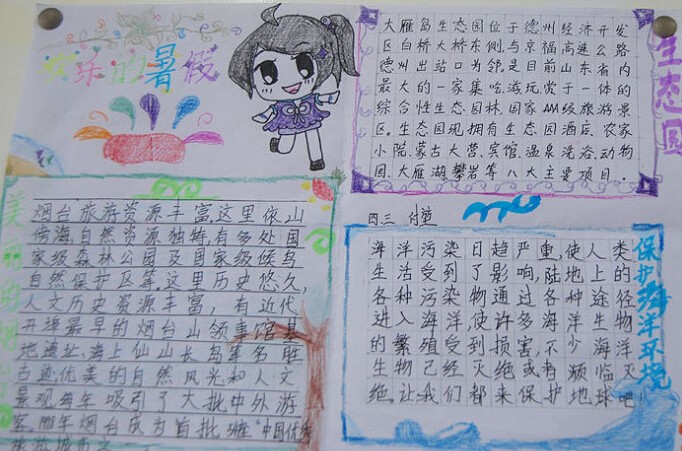 快乐的暑假
大雁岛生态园位于德州经济开发
区白桥大桥东侧,与京福高速公路
德州出站口为邻,是目前山东省内
最大的一家集吃、游、玩、赏于一体的
综合性生态园林,国家AAA级旅游景
区。生态园现拥有生态园酒店、农家
小院、蒙古大营、宾馆、温泉洗浴、动物
园、大雁湖、攀岩等八大主要项目。
生态园
四三
美丽的烟台
烟台旅游资源丰富,这里依山
傍海,自然资源独特,有多处国
家级森林公园及国家级候鸟
自然保护区等,这里历史悠久,
人文历史资源丰富,有近代
开埠最早的烟台山领事馆基
地遗址、海上仙山长岛等多胜
古迹,优美的自然风光和人文
景观每年吸引了大批中外游
客,烟台成为首批"中国优秀
旅游城市之
海洋污染日趋严重,使人类
生活受到了影响,陆地上的
各种污染物通过各种途径
进入海洋,使许多海洋生物
的繁殖受到损害,不少海洋
生物已经灭绝或有频临灭
绝,让我们都来保护地球吧
保护海洋环境